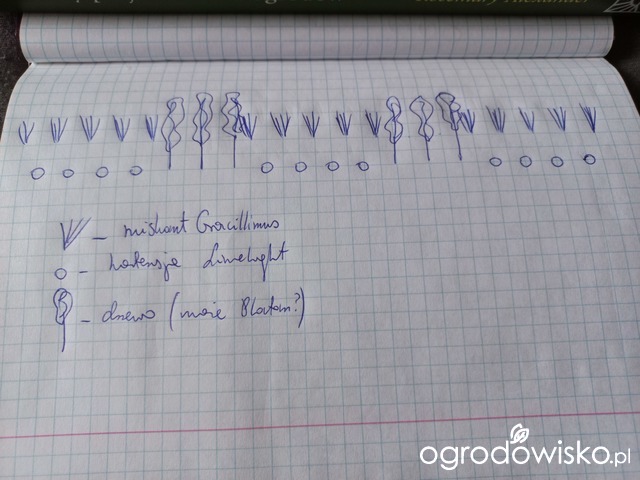 – miskant Gracillimus
– hortensje Limelight
– drzewo (może Platan?)
ogrodowisko.pl